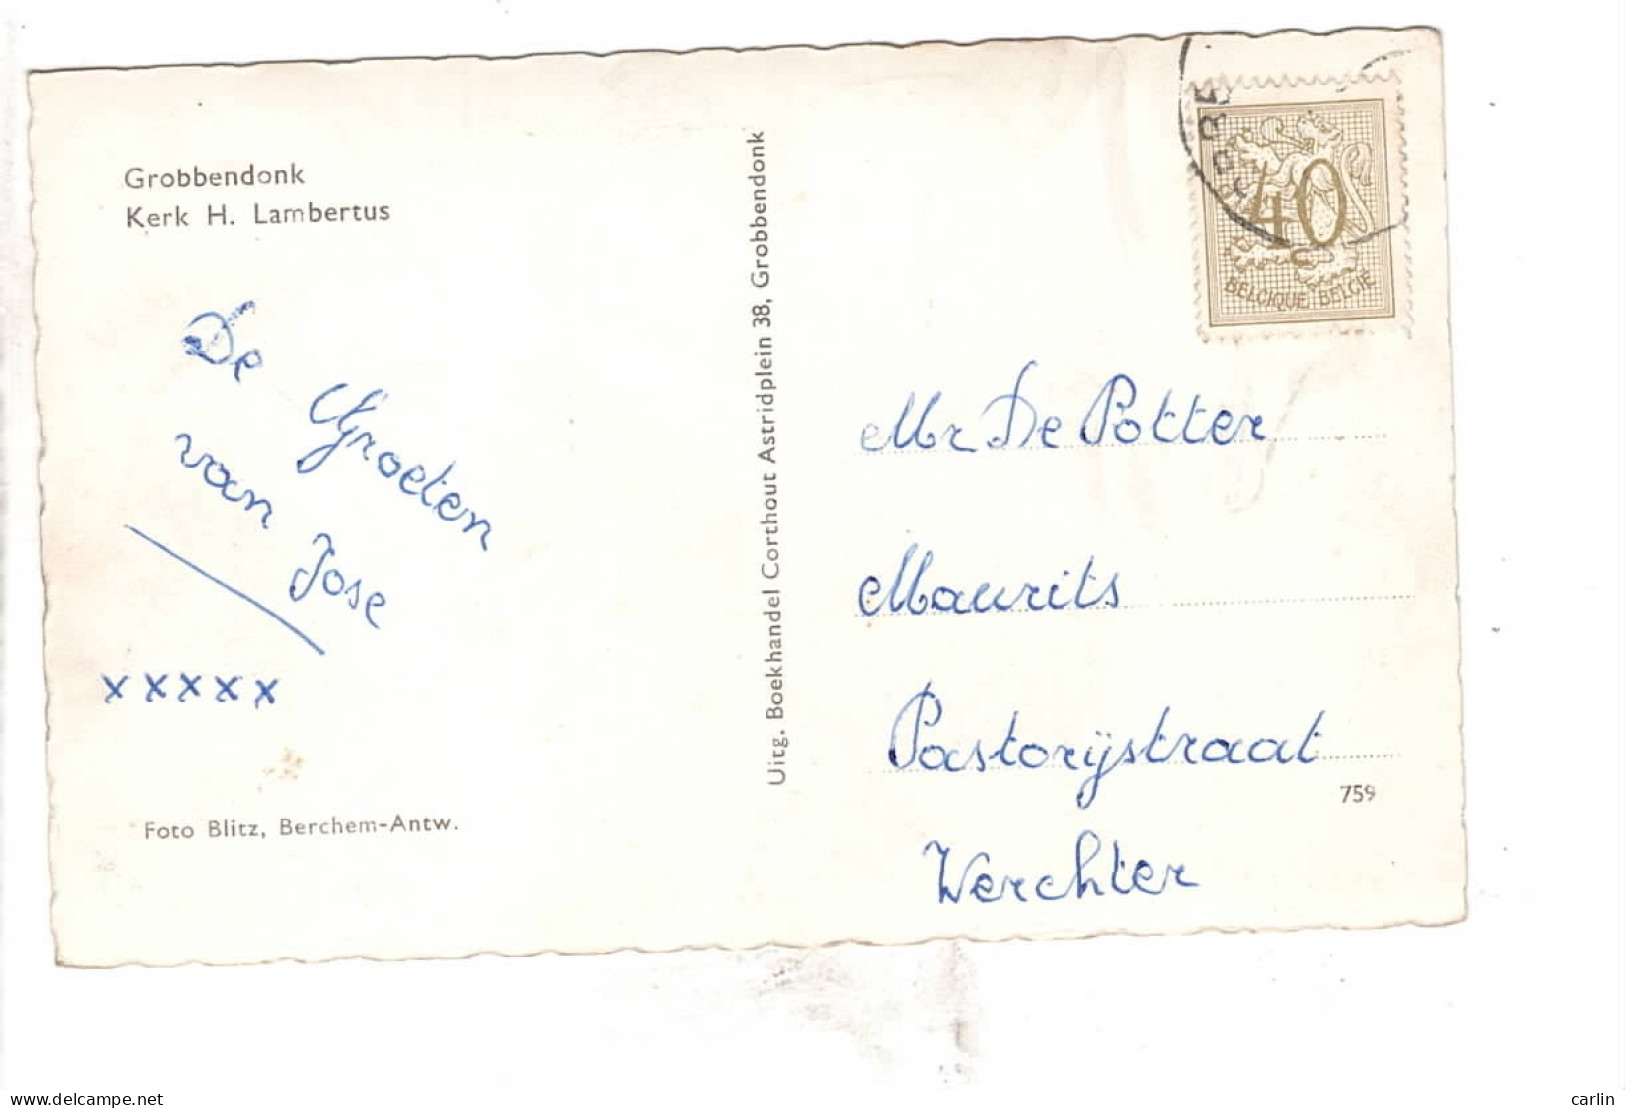 Grobbendonk
Kerk H. Lambertus
De Groeten
van Jose
x x x x x
Foto Blitz, Berchem-Antw.
Uitg. Boekhandel Corthout Astridplein 38, Grobbendonk
40
BELGIQUE BELGIË
Mr De Potter
Maurits
Pastorijstraat
759
Werchter
www.delcampe.net
carlin